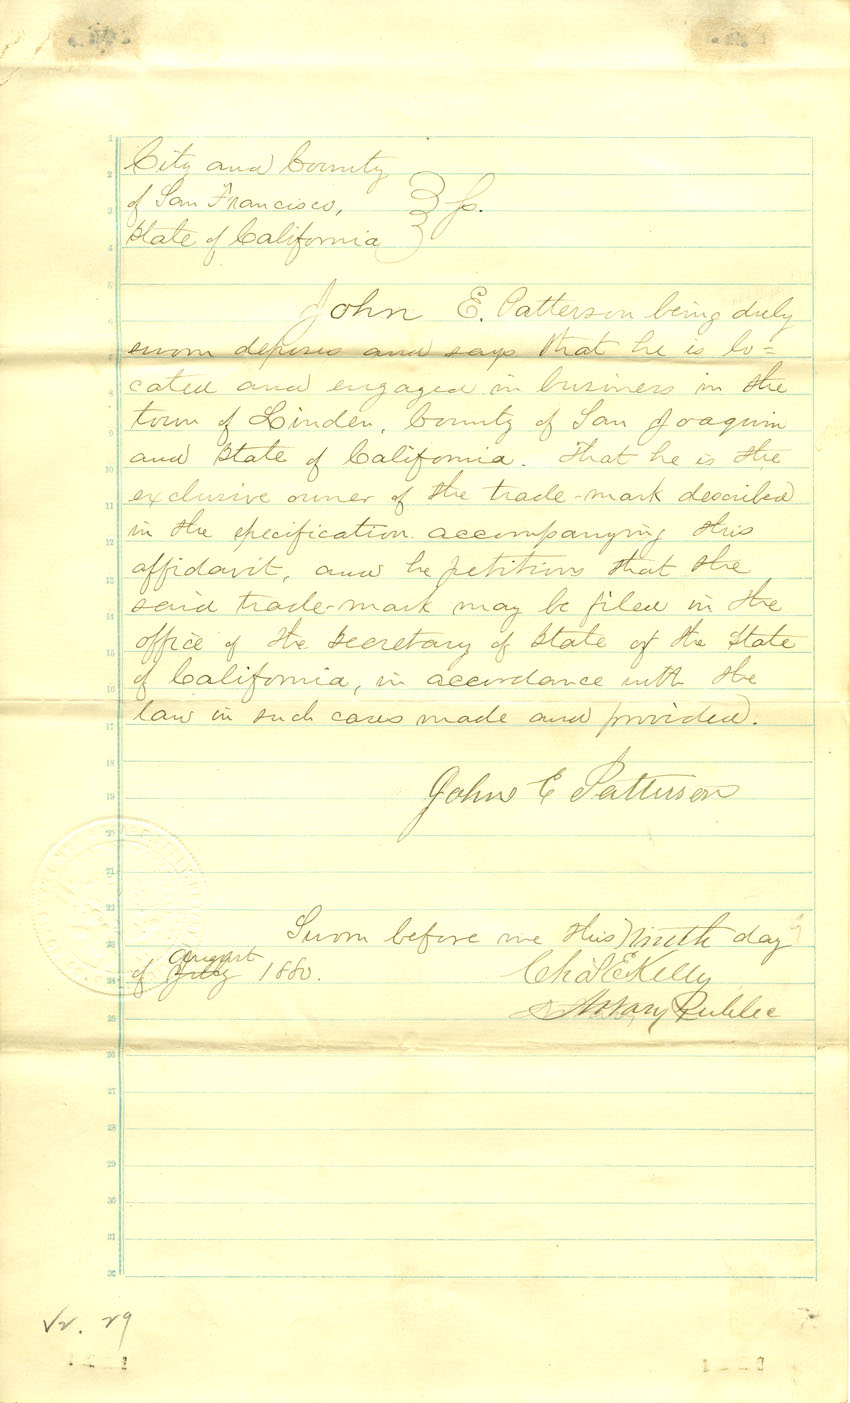 City and County
of San Francisco, } ss.
State of California
John E. Patterson being duly
sworn deposes and says that he is lo=
cated and engaged in business in the
town of Linden, County of San Joaquin
and State of California. That he is the
exclusive owner of the trade-mark described
in the specification accompanying this
affidavit, and he petitions that the
said trade-mark may be filed in the
office of the Secretary of State of the State
of California, in accordance with the
law in such cases made and provided.
John E Patterson
Sworn before me this ninth day
august
of July 1880.
Chas E Kelly
Notary Public
29